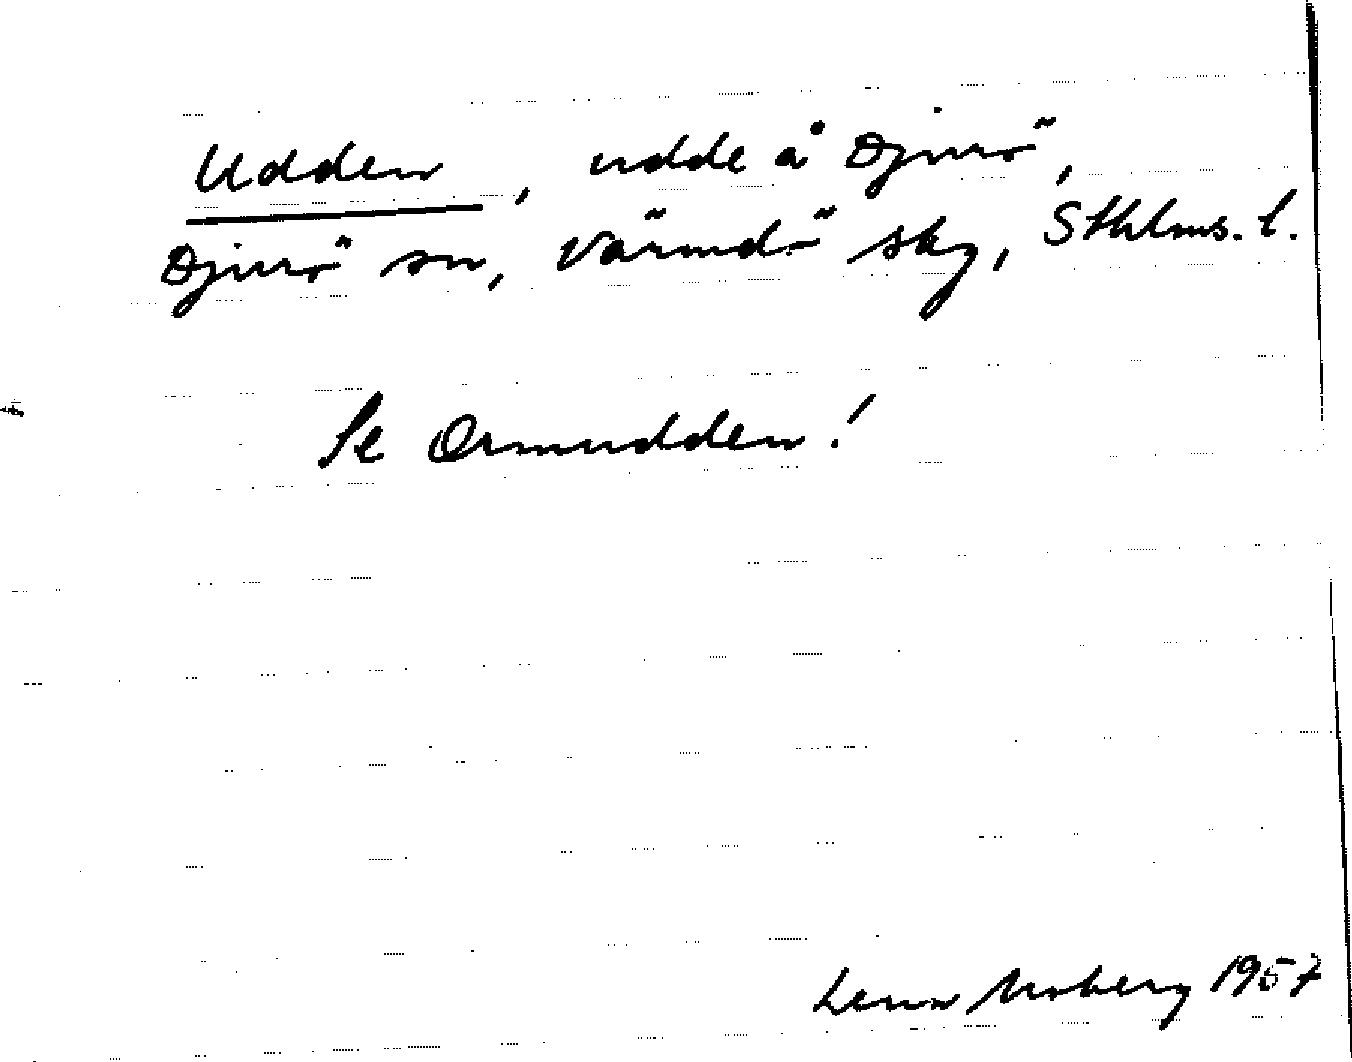 Udden, udde å Djurö,
Djurö sn, Värmdö skg, Sthlms. l.
Se Ormudden!
Lena Moberg 1957